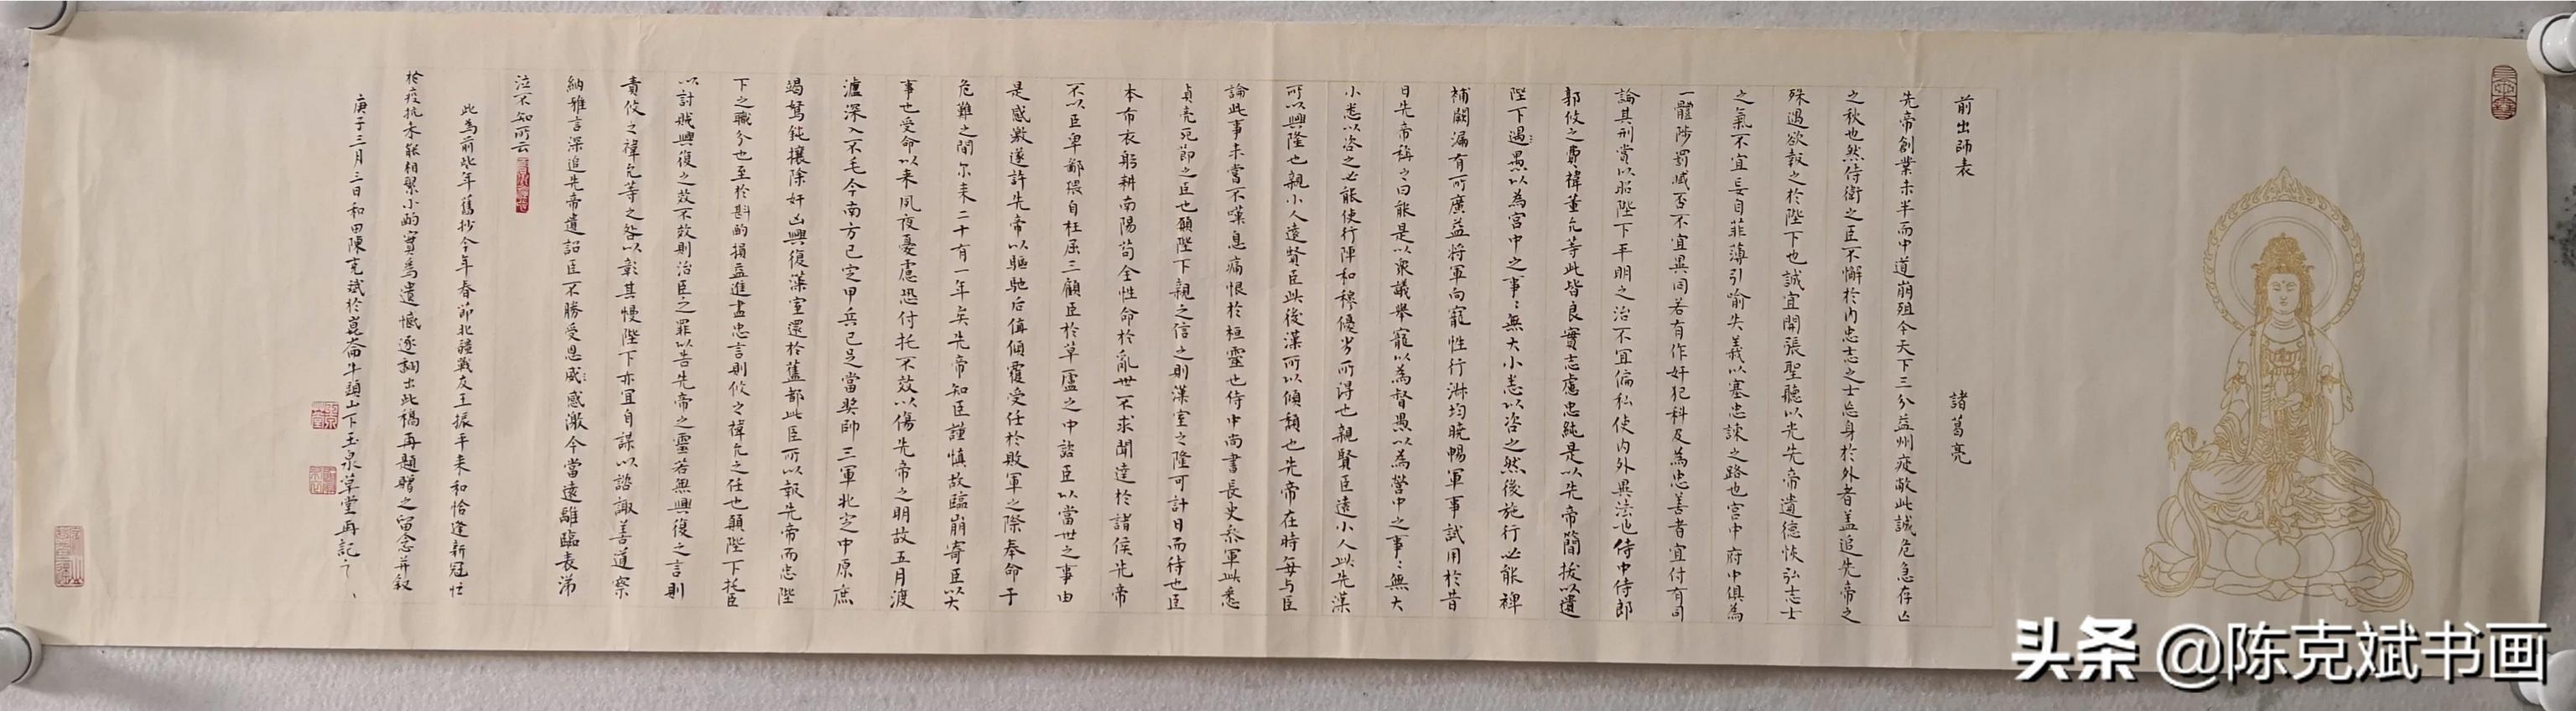 前出師表
諸葛亮
先帝創業未半而中道崩殂今天下三分益州疲敝此誠危急存亡
之秋也然侍衛之臣不懈於內忠志之士忘身於外者蓋追先帝之
殊遇欲報之於陛下也誠宜開張聖聽以光先帝遺德恢弘志士
之氣不宜妄自菲薄引喻失義以塞忠諫之路也宮中府中俱為
一體陟罰臧否不宜異同若有作奸犯科及為忠善者宜付有司
論其刑賞以昭陛下平明之治不宜偏私使內外異法也侍中侍郎
郭攸之費禕董允等此皆良實志慮忠純是以先帝簡拔以遺
陛下愚以為宮中之事〻無大小悉以咨之然後施行必能裨
補闕漏有所廣益將軍向寵性行淑均曉暢軍事試用於昔
日先帝稱之曰能是以衆議舉寵以為督愚以為營中之事〻無大
小悉以咨之必能使行陣和穆優劣所得也親賢臣遠小人此先漢
所以興隆也親小人遠賢臣此後漢所以傾頹也先帝在時每与臣
論此事未嘗不嘆息痛恨於桓靈也侍中尚書長史參軍此悉
貞亮死節之臣也願陛下親之信之則漢室之隆可計日而待也臣
本布衣躬耕南陽苟全性命於亂世不求聞達於諸侯先帝
不以臣卑鄙猥自枉屈三顧臣於草廬之中諮臣以當世之事由
是感激遂許先帝以驅馳后值傾覆受任於敗軍之際奉命于
危難之間尔来二十有一年矣先帝知臣謹慎故臨崩寄臣以大
事也受命以来夙夜憂慮恐付托不效以傷先帝之明故五月渡
瀘深入不毛今南方已定甲兵已足當奖帥三軍北定中原庶
竭駑鈍攘除奸凶興復漢室還於舊都此臣所以報先帝而忠陛
下之職分也至於斟酌損益進盡忠言則攸之禕允之任也願陛下托臣
以討賊興復之效不效則治臣之罪以告先帝之靈若無興復之言則
責攸之禕允等之咎以彰其慢陛下亦宜自謀以諮諏善道察
納雅言深追先帝遺詔臣不勝受恩感激今當遠離臨表涕
泣不知所云
此為前些年舊抄今年春節北疆戰友王振平来和恰逢新冠忙
於疫抗未能相聚小酌實為遺憾逐翻出此稿再題贈之留念并叙
庚子三月三日和田陳克斌於崑崙牛頭山下玉泉草堂再記之
头条 @陈克斌书画